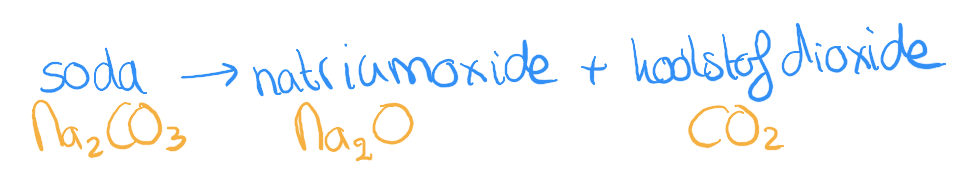 soda → natriumoxide + koolstofdioxide
Na₂CO₃ Na₂O CO₂